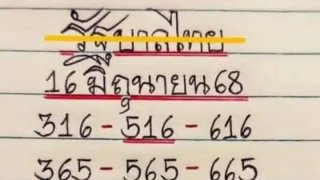 รัฐบาลไทย
16 มิถุนายน 68
316 - 516 - 616
365 - 565 - 665